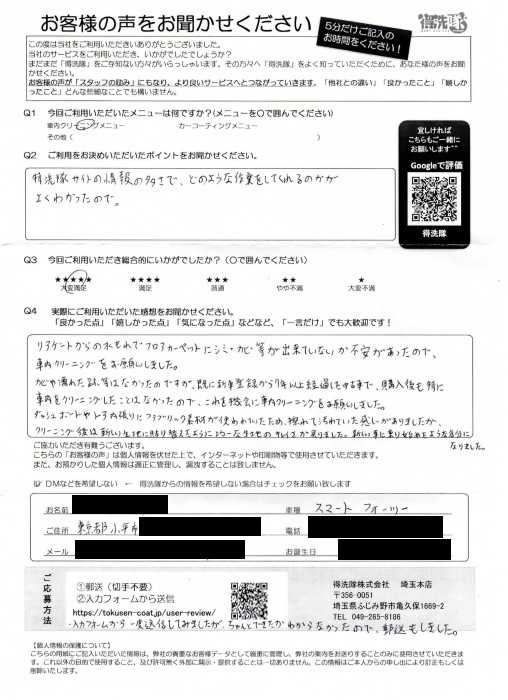 お客様の声をお聞かせください
5分だけご記入の
お時間をください！
得洗隊
この度は当社をご利用いただきありがとうございました。
当社のサービスをご利用いただき、いかがでしたでしょうか？
まだまだ「得洗隊」をご存知ない方々がいらっしゃいます。その方々へ「得洗隊」をよく知っていただくために、あなた様の声をお聞かせください。
お客様の声が「スタッフの励み」にもなり、より良いサービスへとつながっていきます。「他社との違い」「良かったこと」「嬉しかったこと」どんな些細なことでも構いません。
Q1 今回ご利用いただいたメニューは何ですか？(メニューを〇で囲んでください)
車内クリーニングメニュー カーコーティングメニュー
その他（ ）
宜しければ
こちらもご一緒に
お願いします^^
Googleで評価
得洗隊
Q2 ご利用をお決めいただいたポイントをお聞かせください。
得洗隊サイトの情報の多さで、どのような作業をしてくれるのかが
よくわかったので。
Q3 今回ご利用いただき総合的にいかがでしたか？（〇で囲んでください）
★★★★★ ★★★★ ★★★ ★★ ★
大変満足 満足 普通 やや不満 大変不満
Q4 実際にご利用いただいた感想をお聞かせください。
「良かった点」「嬉しかった点」「気になった点」などなど、「一言だけ」でも大歓迎です！
リアゲートからの水もれでフロアカーペットにシミ・カビ等が出来ていないか不安があったので、
車内クリーニングをお願いしました。
カビや濡れた跡等はなかったのですが、既に新車登録から7年以上経過した中古車で、購入後も特に
車内をクリーニングしたことはなかったので、これを機会に車内クリーニングをお願いしました。
ダッシュボードやドア内張りにファブリック素材が使われていたため、擦れて汚れていた感じがありましたが、
クリーニング後は新しい生地に貼り替えたように
新しい車に乗り始めたような気分に
なりました。
ご協力いただき有難うございます。
こちらの「お客様の声」は個人情報を伏せた上で、インターネットや印刷物等で使用させていただきます。
また、お預かりした個人情報は適正に管理し、漏洩することは致しません。
DMなどを希望しない ← 得洗隊からの情報を希望しない場合はチェックをお願い致します
お名前 車種 スマート フォーツー
ご住所 東京都小平市 電話
メール お誕生日
ご応募方法
①郵送（切手不要）
②入力フォームから送信
https://tokusen-coat.jp/user-review/
得洗隊株式会社 埼玉本店
〒356-0051
埼玉県ふじみ野市亀久保1669-2
TEL 049-265-8186
・入力フォームから一度送信してみましたが、ちゃんとできたかわからなかったので、郵送もしました。
【個人情報の保護について】
こちらの用紙にご記入いただいた情報は、弊社の貴重なお客様データとして厳重に管理し、弊社の案内をお送りすることのみに使用させていただきます。これ以外の目的で使用すること、及び許可無く外部に開示・提供することは一切ありません。この情報はご本人からの申し出により訂正もしくは削除いたします。